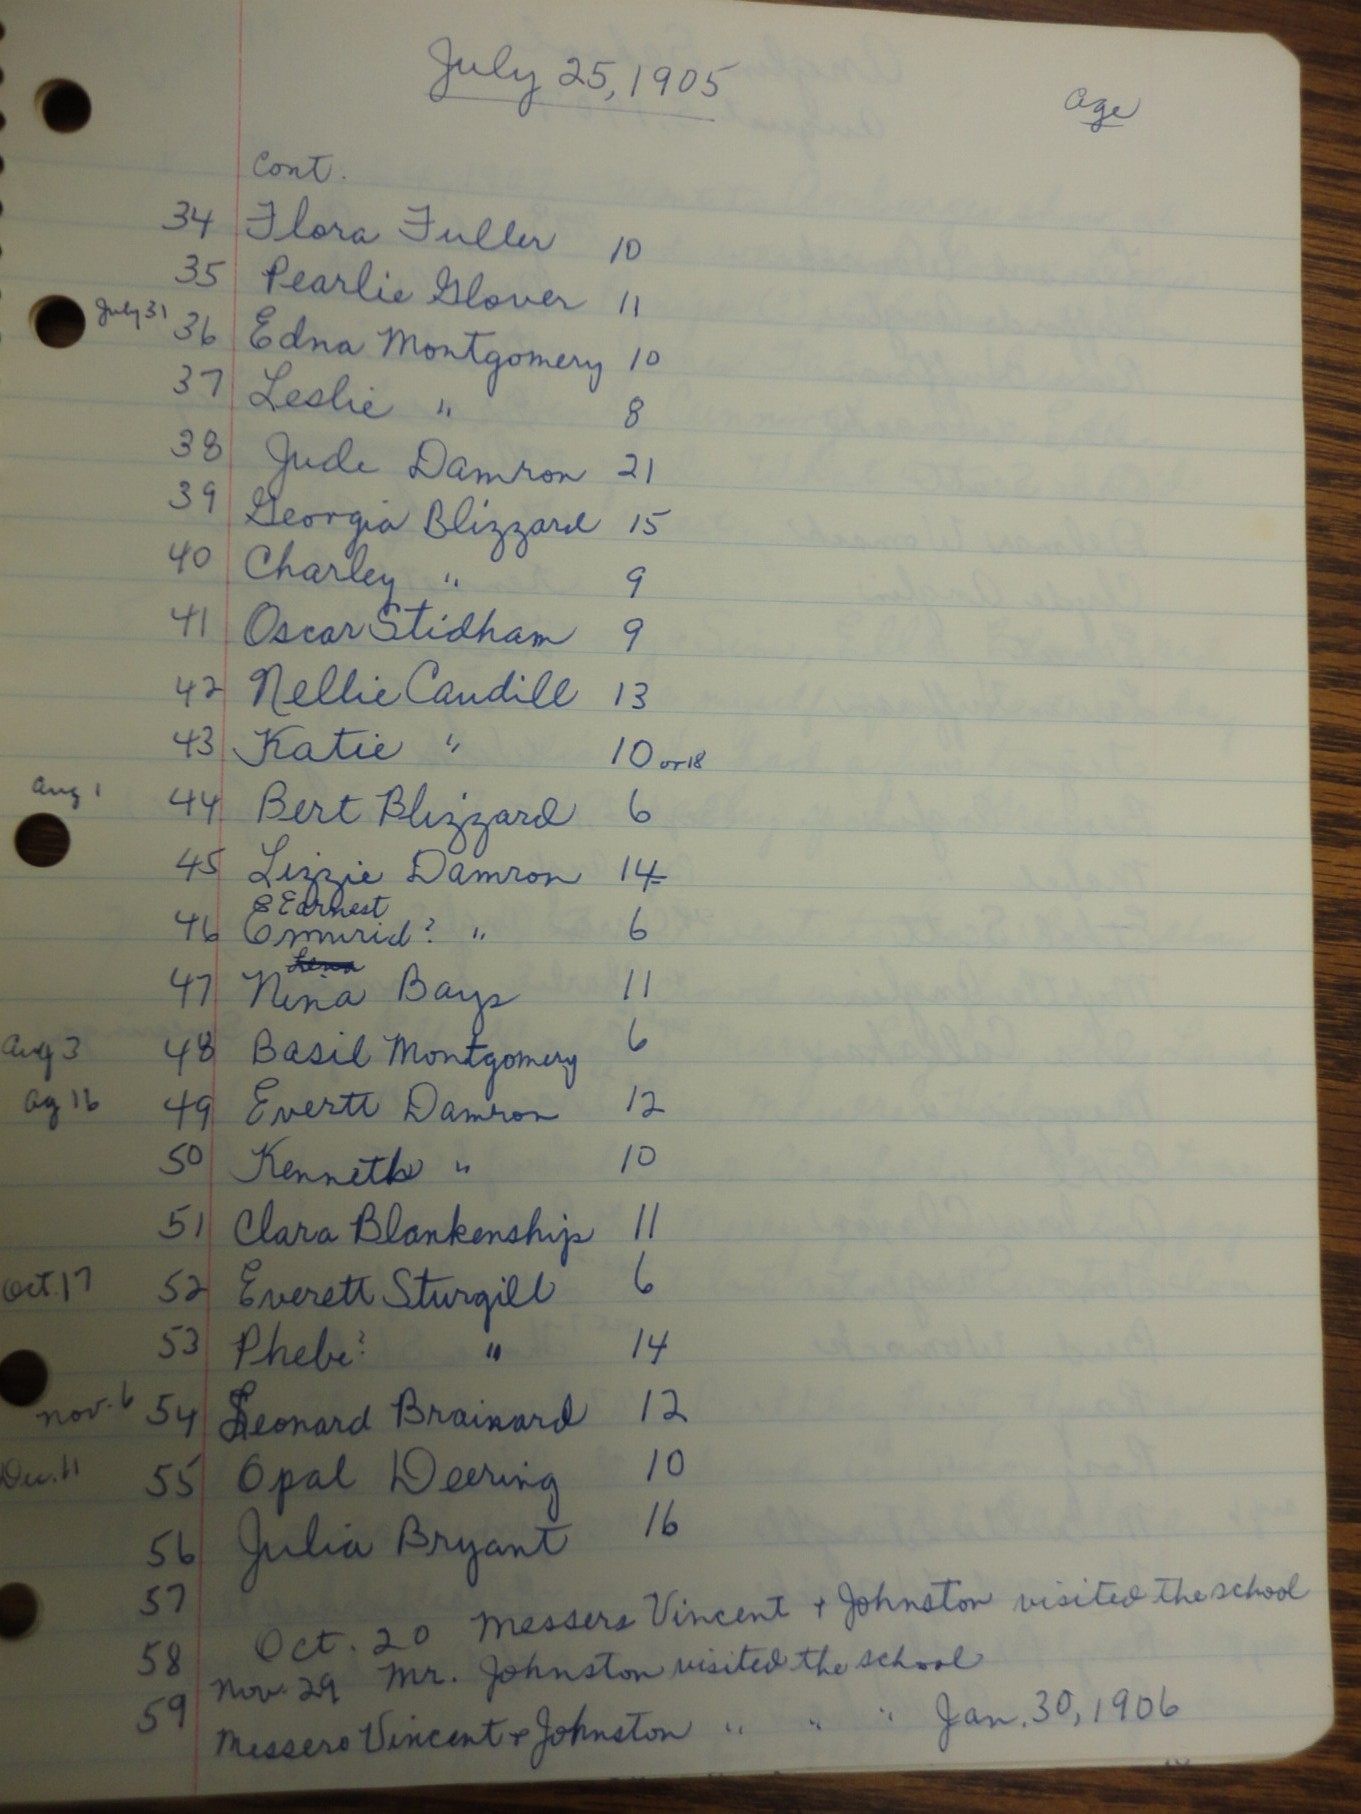 July 25, 1905
Age
Cont.
34 Flora Fuller 10
35 Pearlie Glover 11
July 31 36 Edna Montgomery 10
37 Leslie " 8
38 Jude Damron 21
39 Georgia Blizzard 15
40 Charley " 9
41 Oscar Stidham 9
42 Nellie Caudill 13
43 Katie " 10 or 18
Aug 1 44 Bert Blizzard 6
45 Lizzie Damron 14
Earnest
46 Emurid? " 6
Lena
47 Nina Bays 11
Aug 3 48 Basil Montgomery 6
Ag 16 49 Evertt Damron 12
50 Kenneth " 10
51 Clara Blankenship 11
Oct. 17 52 Everett Sturgill 6
53 Phebe? " 14
Nov. 6 54 Leonard Brainard 12
Dec. 11 55 Opal Deering 10
56 Julia Bryant 16
57
58 Oct. 20 Messers Vincent + Johnston visited the school
59 Nov. 29 Mr. Johnston visited the school
Messers Vincent + Johnston " " " Jan. 30, 1906